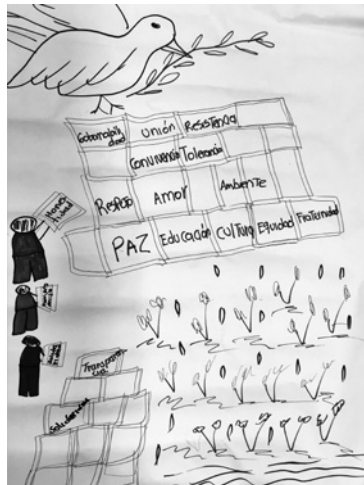 Gobernabili
dad
Unión
Resistencia
Convivencia
Tolerancia
Respeto
Amor
Ambiente
PAZ
Educación
Cultura
Equidad
Fraternidad
Transparen
cia
Solidaridad